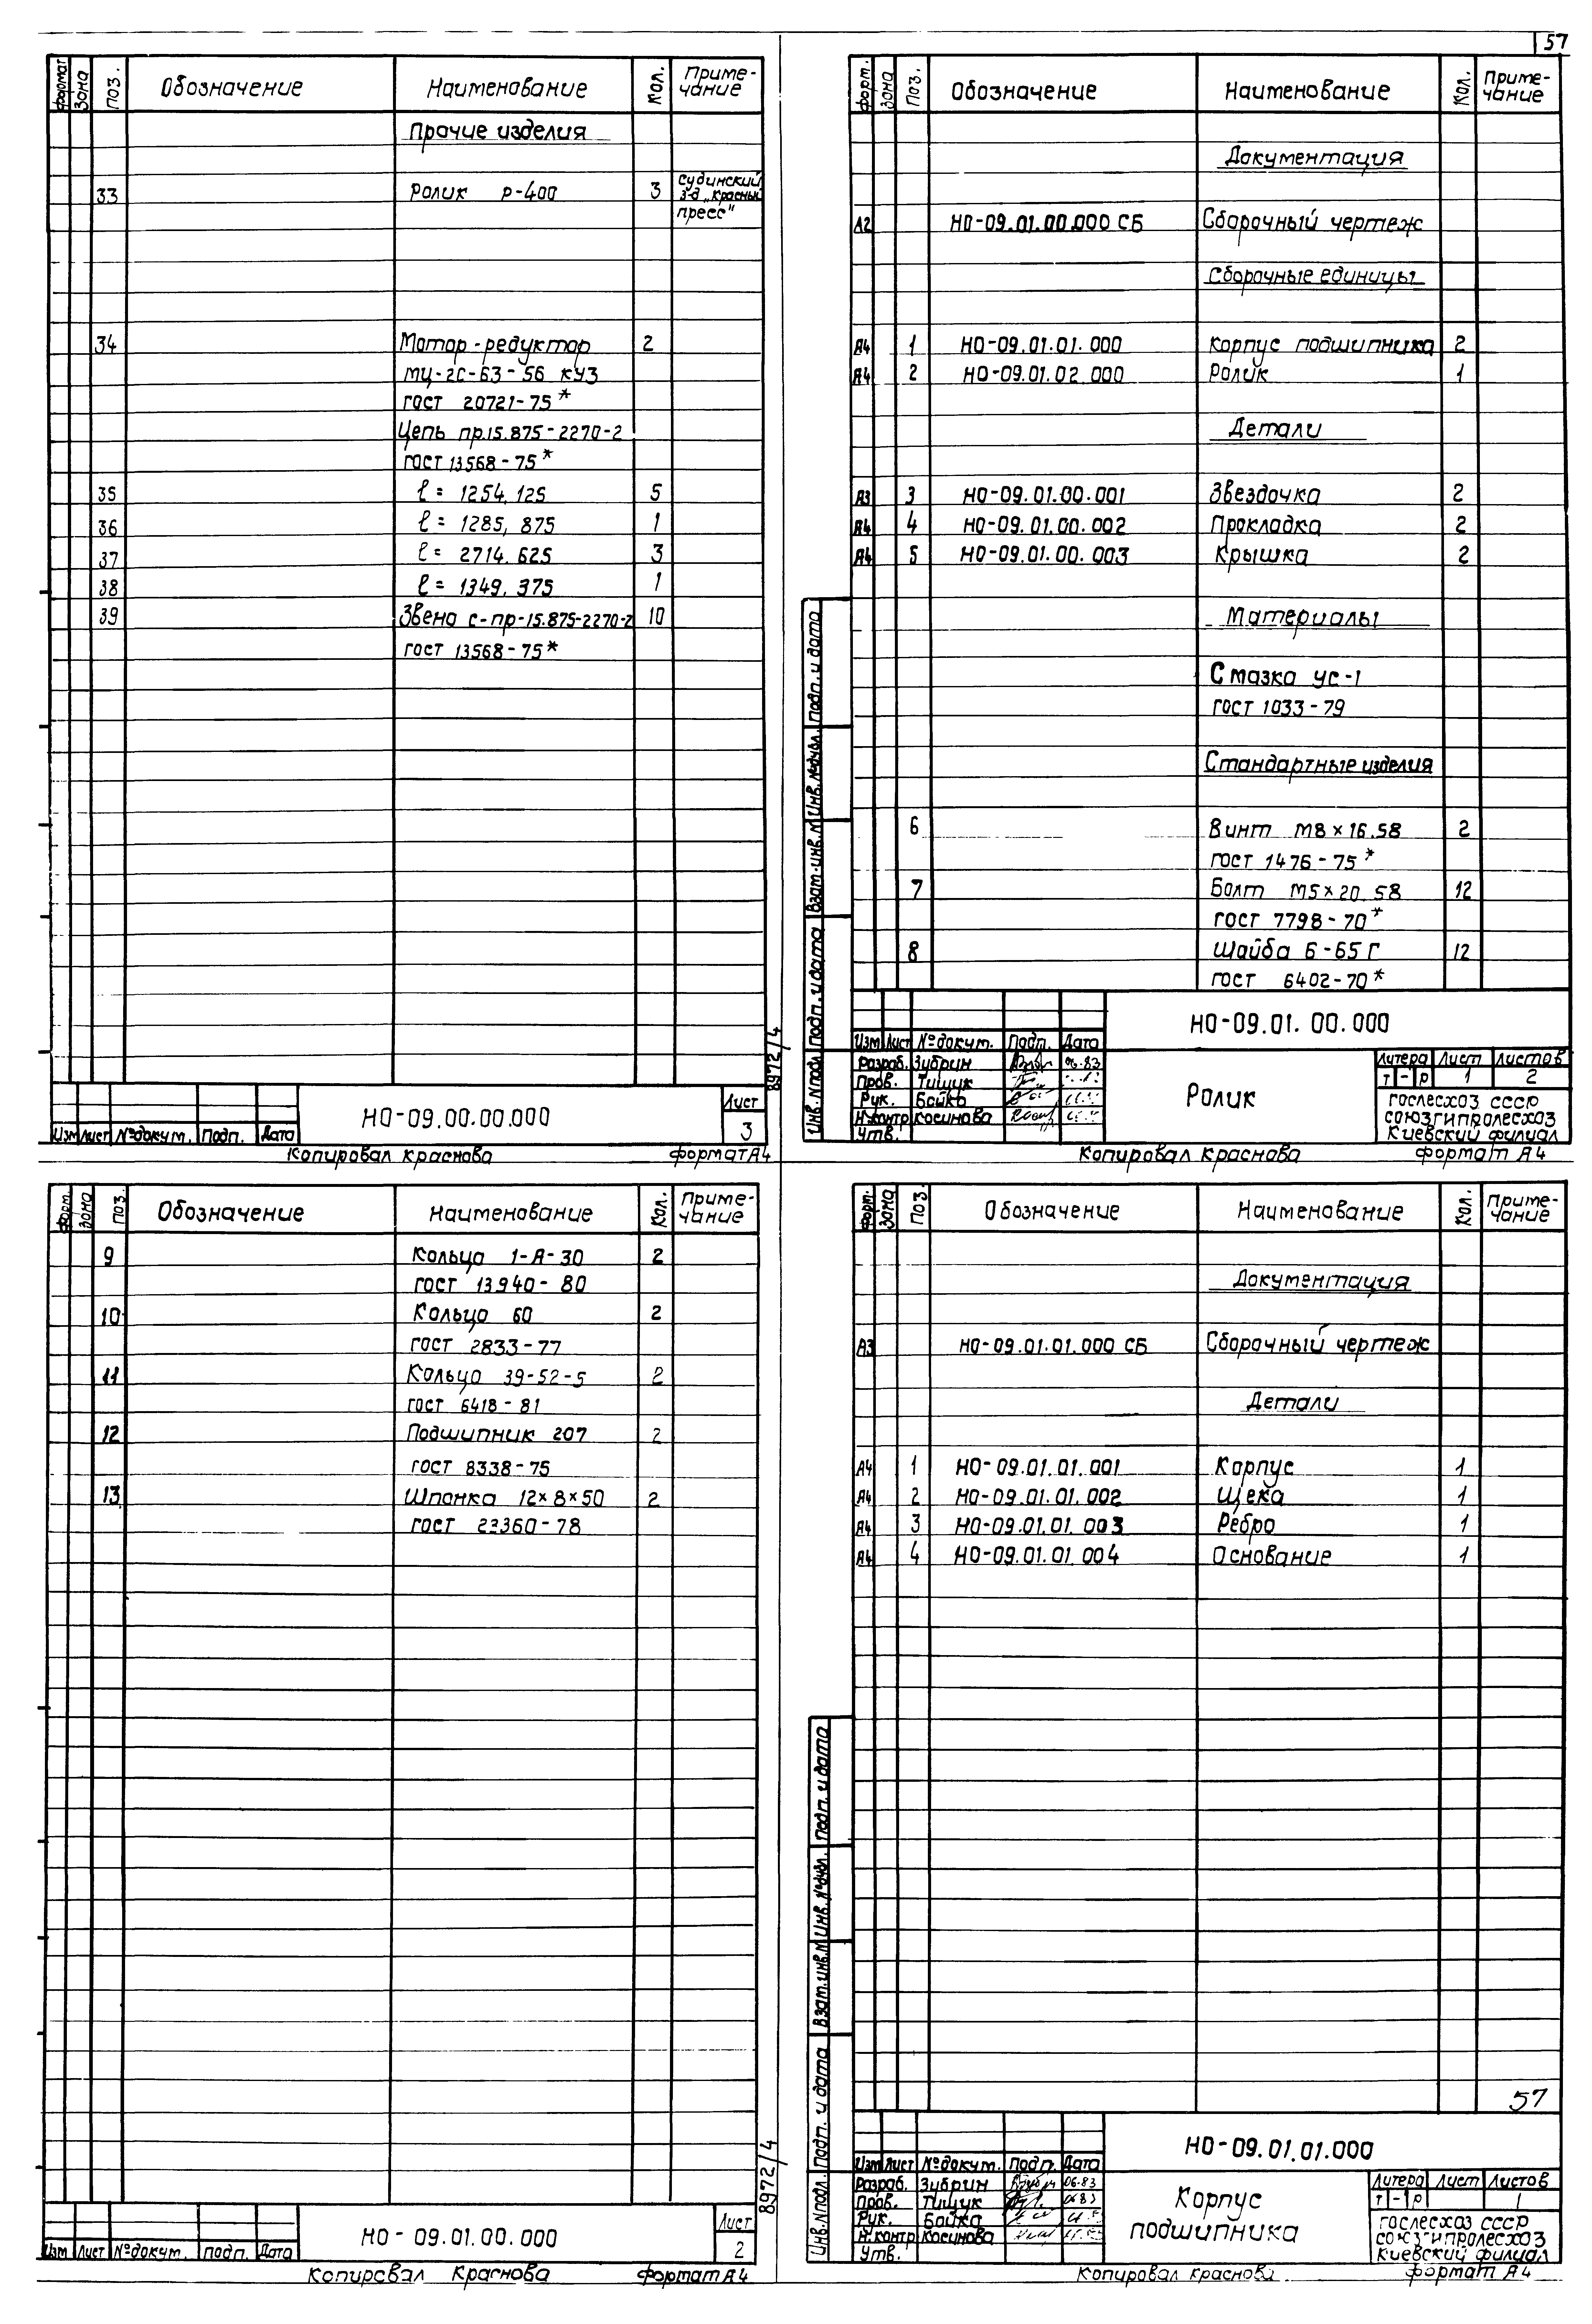 57
Формат Зона Поз. Обозначение Наименование Кол. Приме-чание
Прочие изделия
33 Ролик Р-400 3 Судинский з-д „Красный пресс"
34 Мотор-редуктор 2
МЦ-2С-63-56 КУ3
ГОСТ 20721-75*
Цепь ПР.15.875-2270-2
ГОСТ 13568-75*
35 ℓ= 1254,125 5
36 ℓ= 1285,875 1
37 ℓ= 2714.625 3
38 ℓ= 1349,375 1
39 Звено С-ПР-15.875-2270-2 10
ГОСТ 13568-75*
8972/4
НО-09.00.00.000
Лист
3
Изм Лист №докум. Подп. Дата
Копировал Краснова Формат А4
Форм. Зона Поз. Обозначение Наименование Кол. Приме-чание
Документация
А2 НО-09.01.00.000 СБ Сборочный чертеж
Сборочные единицы
А4 1 НО-09.01.01.000 Корпус подшипника 2
А4 2 НО-09.01.02.000 Ролик 1
Детали
А3 3 НО-09.01.00.001 Звездочка 2
А4 4 НО-09.01.00.002 Прокладка 2
А4 5 НО-09.01.00.003 Крышка 2
Материалы
Смазка УС-1
ГОСТ 1033-79
Стандартные изделия
6 Винт М8×16.58 2
ГОСТ 1476-75*
7 Болт М5×20.58 12
ГОСТ 7798-70*
8 Шайба 6-65Г 12
ГОСТ 6402-70*
Инв.№подл. Подп. и дата Взам.инв.№ Инв.№дубл. Подп. и дата
НО-09.01.00.000
Изм Лист №докум. Подп. Дата
Разраб. Зубрин 06.83
Пров. Тищук
Рук. Бойко
Н.контр Косинова
Утв.
Ролик
Литера Лист Листов
Т - Р 1 2
Гослесхоз СССР
Союзгипролесхоз
Киевский филиал
Копировал Краснова Формат А4
Форм. Зона Поз. Обозначение Наименование Кол. Приме-чание
9 Кольцо 1-А-30 2
ГОСТ 13940-80
10 Кольцо 60 2
ГОСТ 2833-77
11 Кольцо 39-52-5 2
ГОСТ 6418-81
12 Подшипник 207 2
ГОСТ 8338-75
13 Шпонка 12×8×50 2
ГОСТ 23360-78
8972/4
НО-09.01.00.000
Лист
2
Изм Лист №докум. Подп. Дата
Копировал Краснова Формат А4
Форм. Зона Поз. Обозначение Наименование Кол. Приме-чание
Документация
А3 НО-09.01.01.000 СБ Сборочный чертеж
Детали
А4 1 НО-09.01.01.001 Корпус 1
А4 2 НО-09.01.01.002 Щека 1
А4 3 НО-09.01.01.003 Ребро 1
А4 4 НО-09.01.01.004 Основание 1
57
Инв.№подл. Подп. и дата Взам.инв.№ Инв.№дубл. Подп. и дата
НО-09.01.01.000
Изм Лист №докум. Подп. Дата
Разраб. Зубрин 06.83
Пров. Тищук 06 83
Рук. Бойко
Н.контр Косинова
Утв.
Корпус
подшипника
Литера Лист Листов
Т - Р 1
Гослесхоз СССР
Союзгипролесхоз
Киевский филиал
Копировал Краснова Формат А4